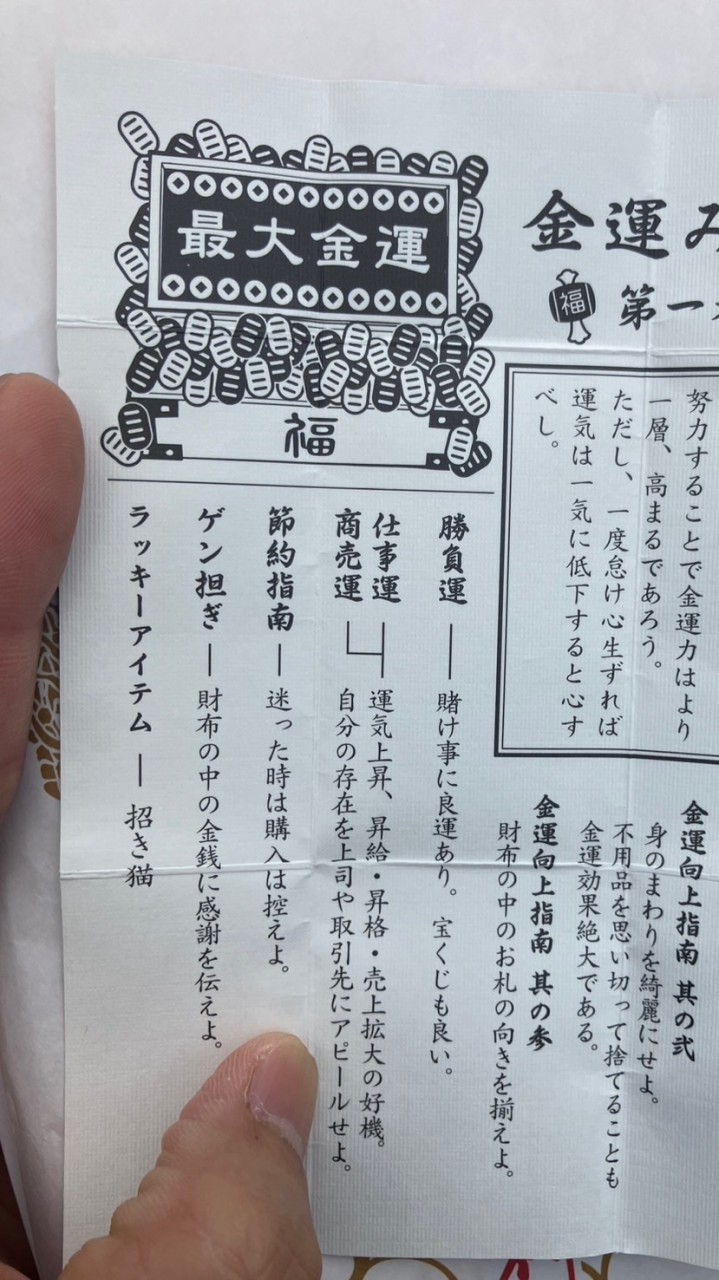 金運み
福
第一
努力することで金運力はより
一層、高まるであろう。
ただし、一度怠け心生ずれば
運気は一気に低下すると心す
べし。
金運向上指南 其の弐
身のまわりを綺麗にせよ。
不用品を思い切って捨てることも
金運効果絶大である。
金運向上指南 其の参
財布の中のお札の向きを揃えよ。
最大金運
福
勝負運 ― 賭け事に良運あり。宝くじも良い。
仕事運
商売運
運気上昇、昇給・昇格・売上拡大の好機。
自分の存在を上司や取引先にアピールせよ。
節約指南 ― 迷った時は購入は控えよ。
ゲン担ぎ ― 財布の中の金銭に感謝を伝えよ。
ラッキーアイテム ― 招き猫